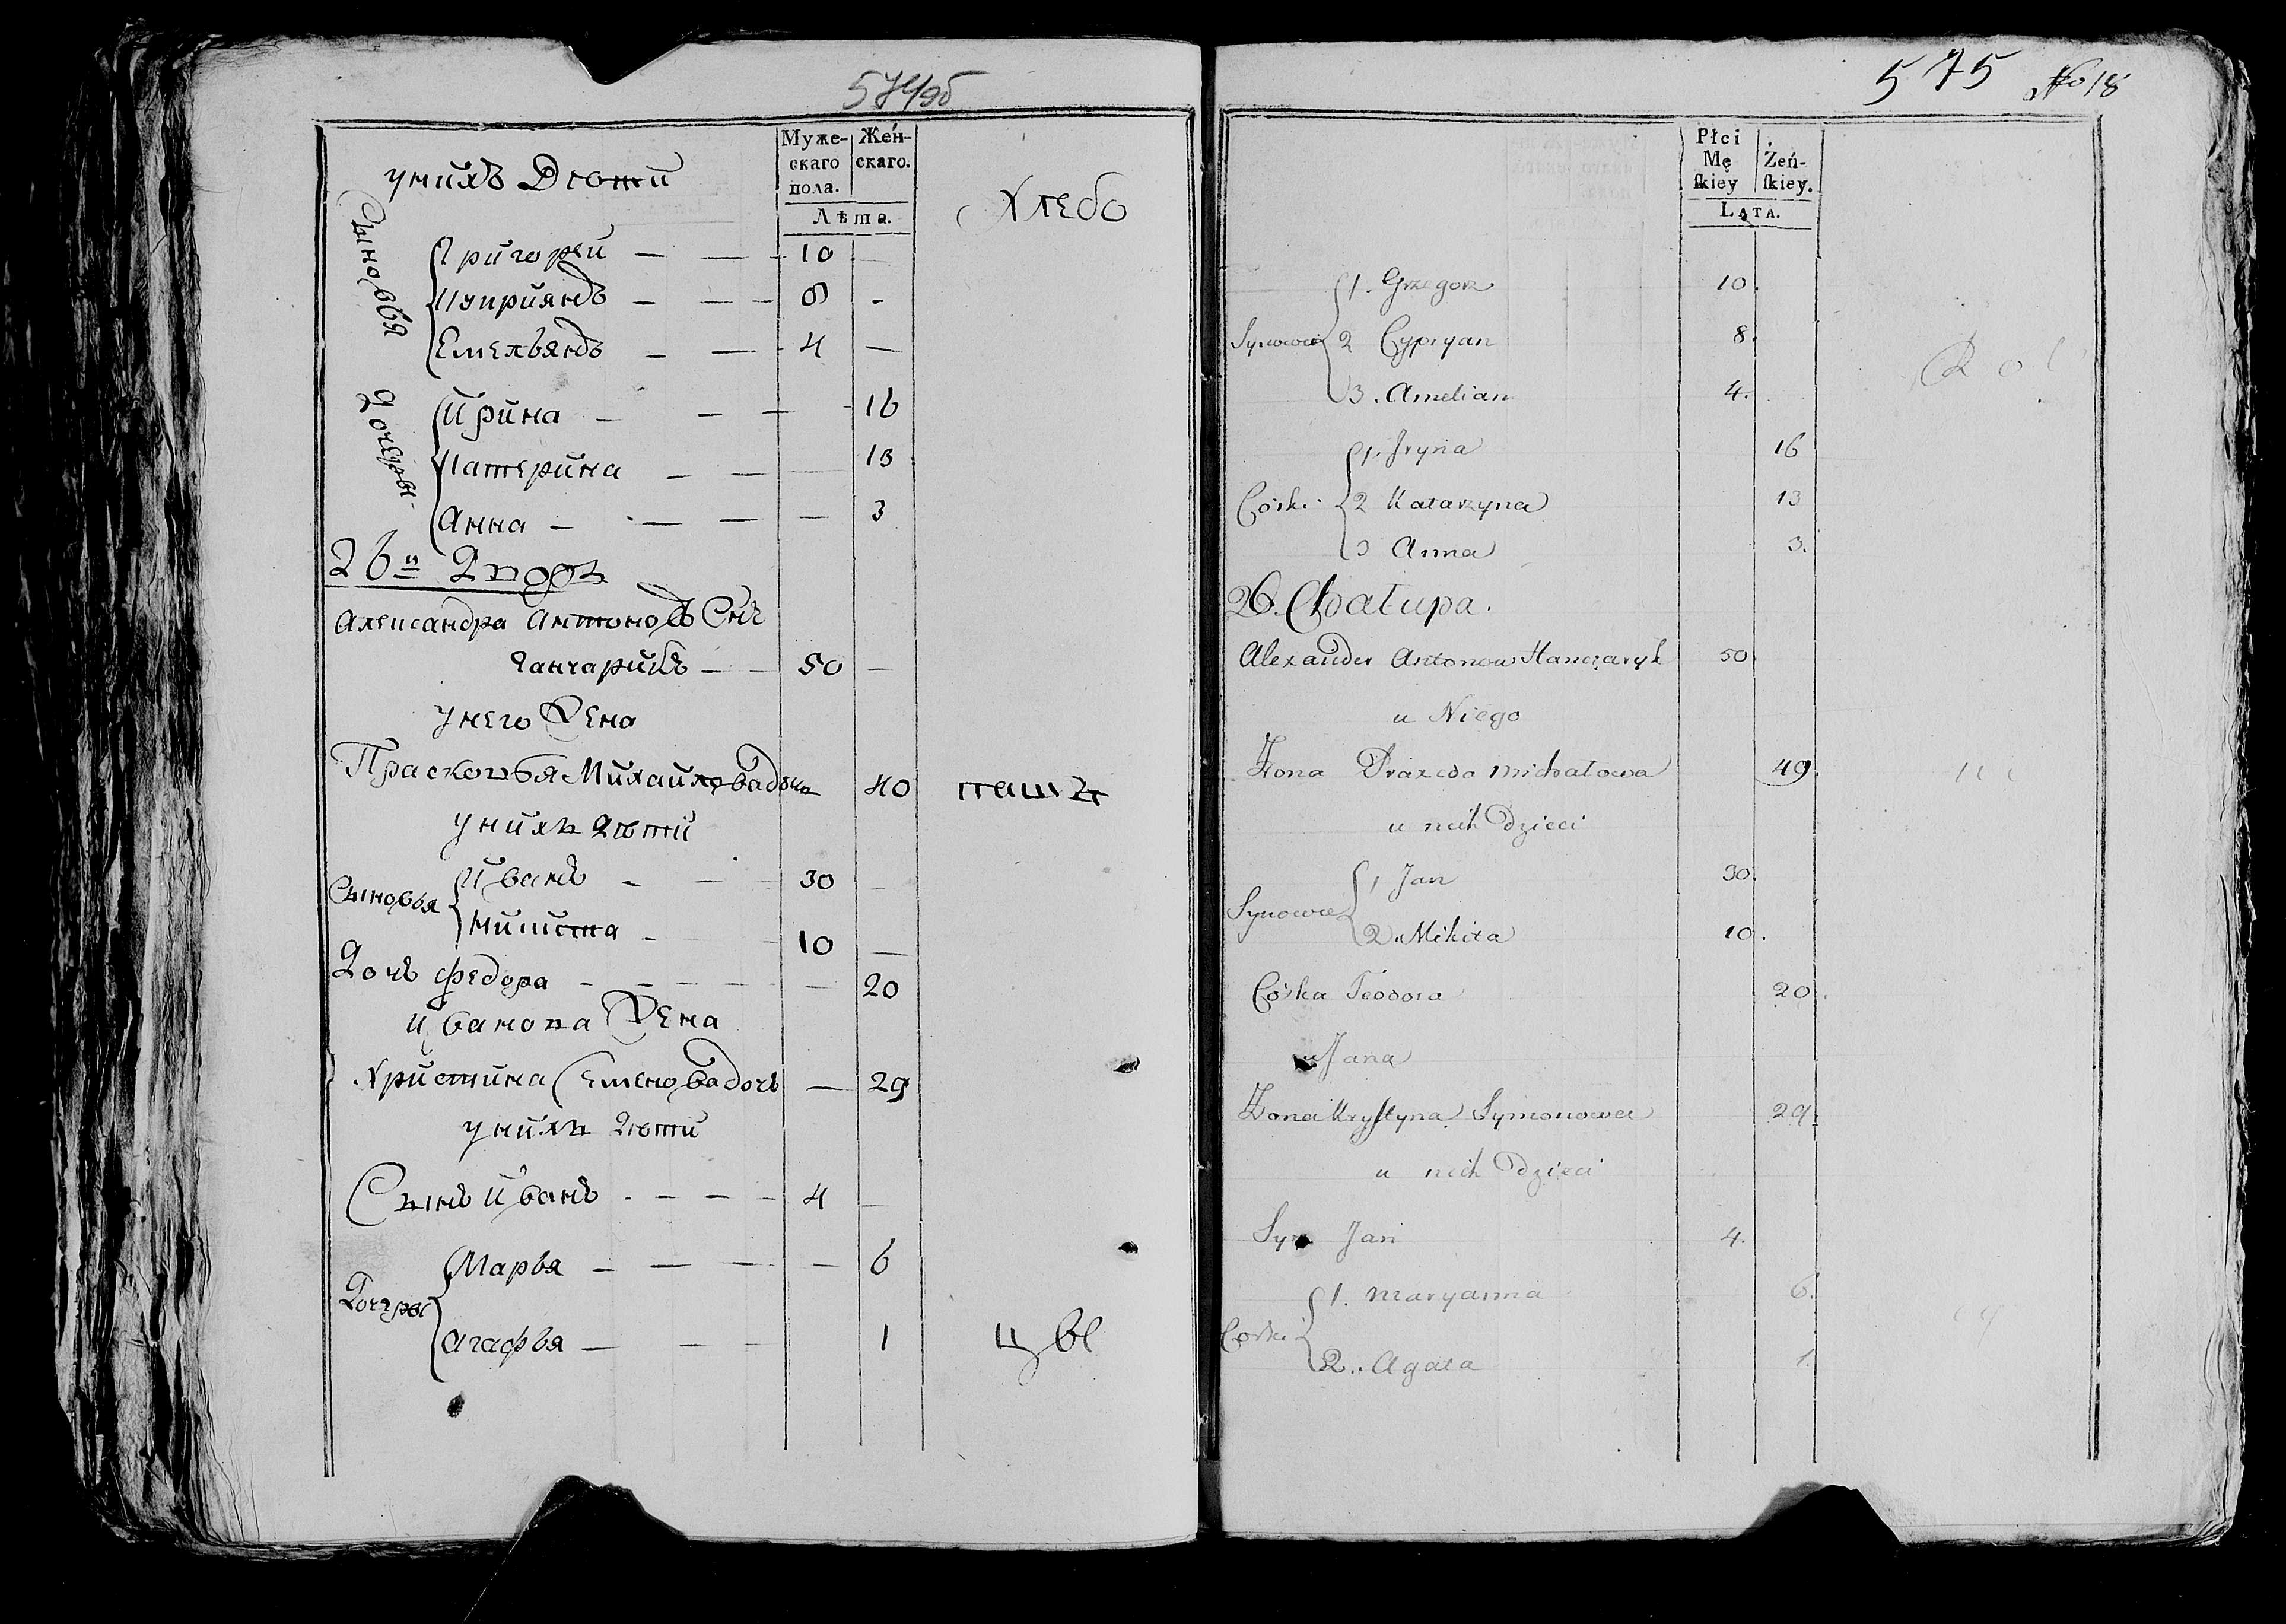 574об
Муже-
скаго
пола.
Жен-
скаго.
Лѣта.
у нихъ Дѣти
Хлебо
Сыновья
Григорей — — 10 —
Куприянъ — — 8 -
Емельянъ — — 4 —
Дочеры
Ирина — — — 16
Катерина — — — 13
Анна — — — — 3
26й Дворъ
Александра Антоновъ Снъ
Ганчарикъ — — 50 —
у него Жена
Прасковья Михайловадочь 40 паш
у нихъ дѣти
Сыновья
Иванъ — — 30 —
Никита — 10 —
Дочь Федора — — — — — 20
Иванова Жена
Христина Семеновадочь — 29
у нихъ дѣти
Сынъ Иванъ - - - - 4 —
Дочеры
Марья — — — — 6
Агафья — — — 1 цы
575 No 18
Płci
Mę
ſkiey
Żeń-
ſkiey.
LATA.
Synowie
1. Grzegorz 10.
2 Cypryan 8.
3. Amelian 4.
Rol
Córki
1. Jryna 16
2 Katarzyna 13
3 Anna 3.
26. Chałupa.
Alexander Antonow Hanczaryk 50
u Niego
Żona Praxeda Michałowa 49.
u nich Dzieci
Synowie
1 Jan 30.
2. Mikita 10.
Córka Teodora 20.
u Jana
Żona Kryſtyna Symonowa 29.
u nich Dzieci
Syn Jan 4.
Córki
1. Maryanna 6.
2. Agata 1.